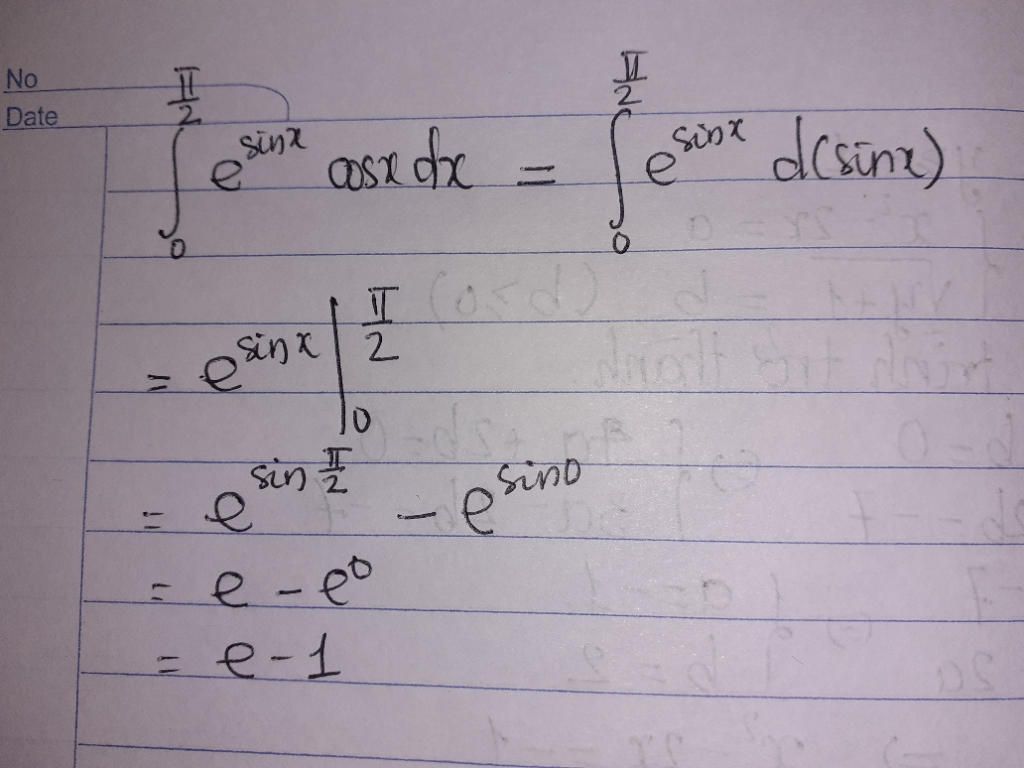 No
Date
∫₀^(π/2) e^(sinx) cosx dx = ∫₀^(π/2) e^(sinx) d(sinx)
= e^(sinx) |₀^(π/2)
= e^(sin π/2) − e^(sin0)
= e − e⁰
= e − 1